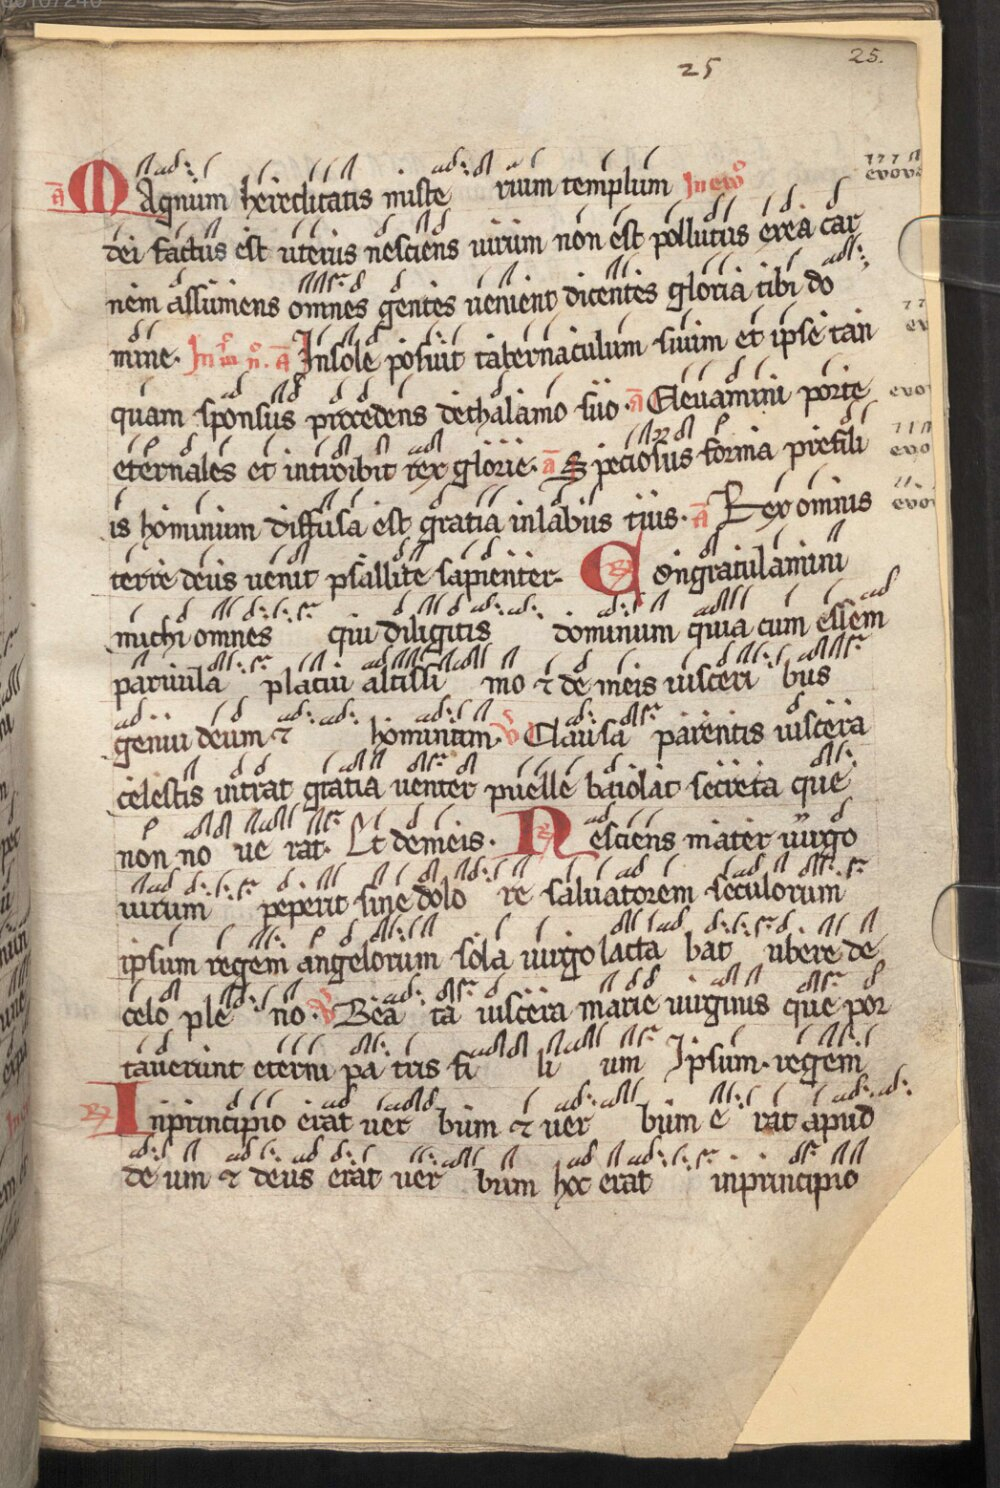 25 25.
a Magnum hereditatis miste rium templum In ewo evova
dei factus est uterus nesciens uirum non est pollutus ex ea car
nem assumens omnes gentes uenient dicentes gloria tibi do
mine. In pmo n. a In sole posuit tabernaculum suum et ipse tan ev
quam sponsus procedens dethalamo suo. a Eleuamini porte evo
eternales et introibit rex glorie. a Speciosus forma prefili evo
is hominum diffusa est gratia inlabiis tuis. a Rex omnis evo
terre deus uenit psallite sapienter. Congratulamini
michi omnes qui diligitis dominum quia cum essem
paruula placui altissi mo ⁊ de meis uisceri bus
genui deum ⁊ hominum. V Clausa parentis uiscera
celestis intrat gratia uenter puelle baiolat secreta que
non no ue rat. Et demeis. Nesciens mater uirgo
uirum peperit sine dolo re saluatorem seculorum
ipsum regem angelorum sola uirgo lacta bat ubere de
celo ple no. V Bea ta uiscera marie uirginis que por
tauerunt eterni pa tris fi li um Ipsum. regem
Inprincipio erat uer bum ⁊ uer bum e rat apud
de um ⁊ deus erat uer bum hoc erat inprincipio